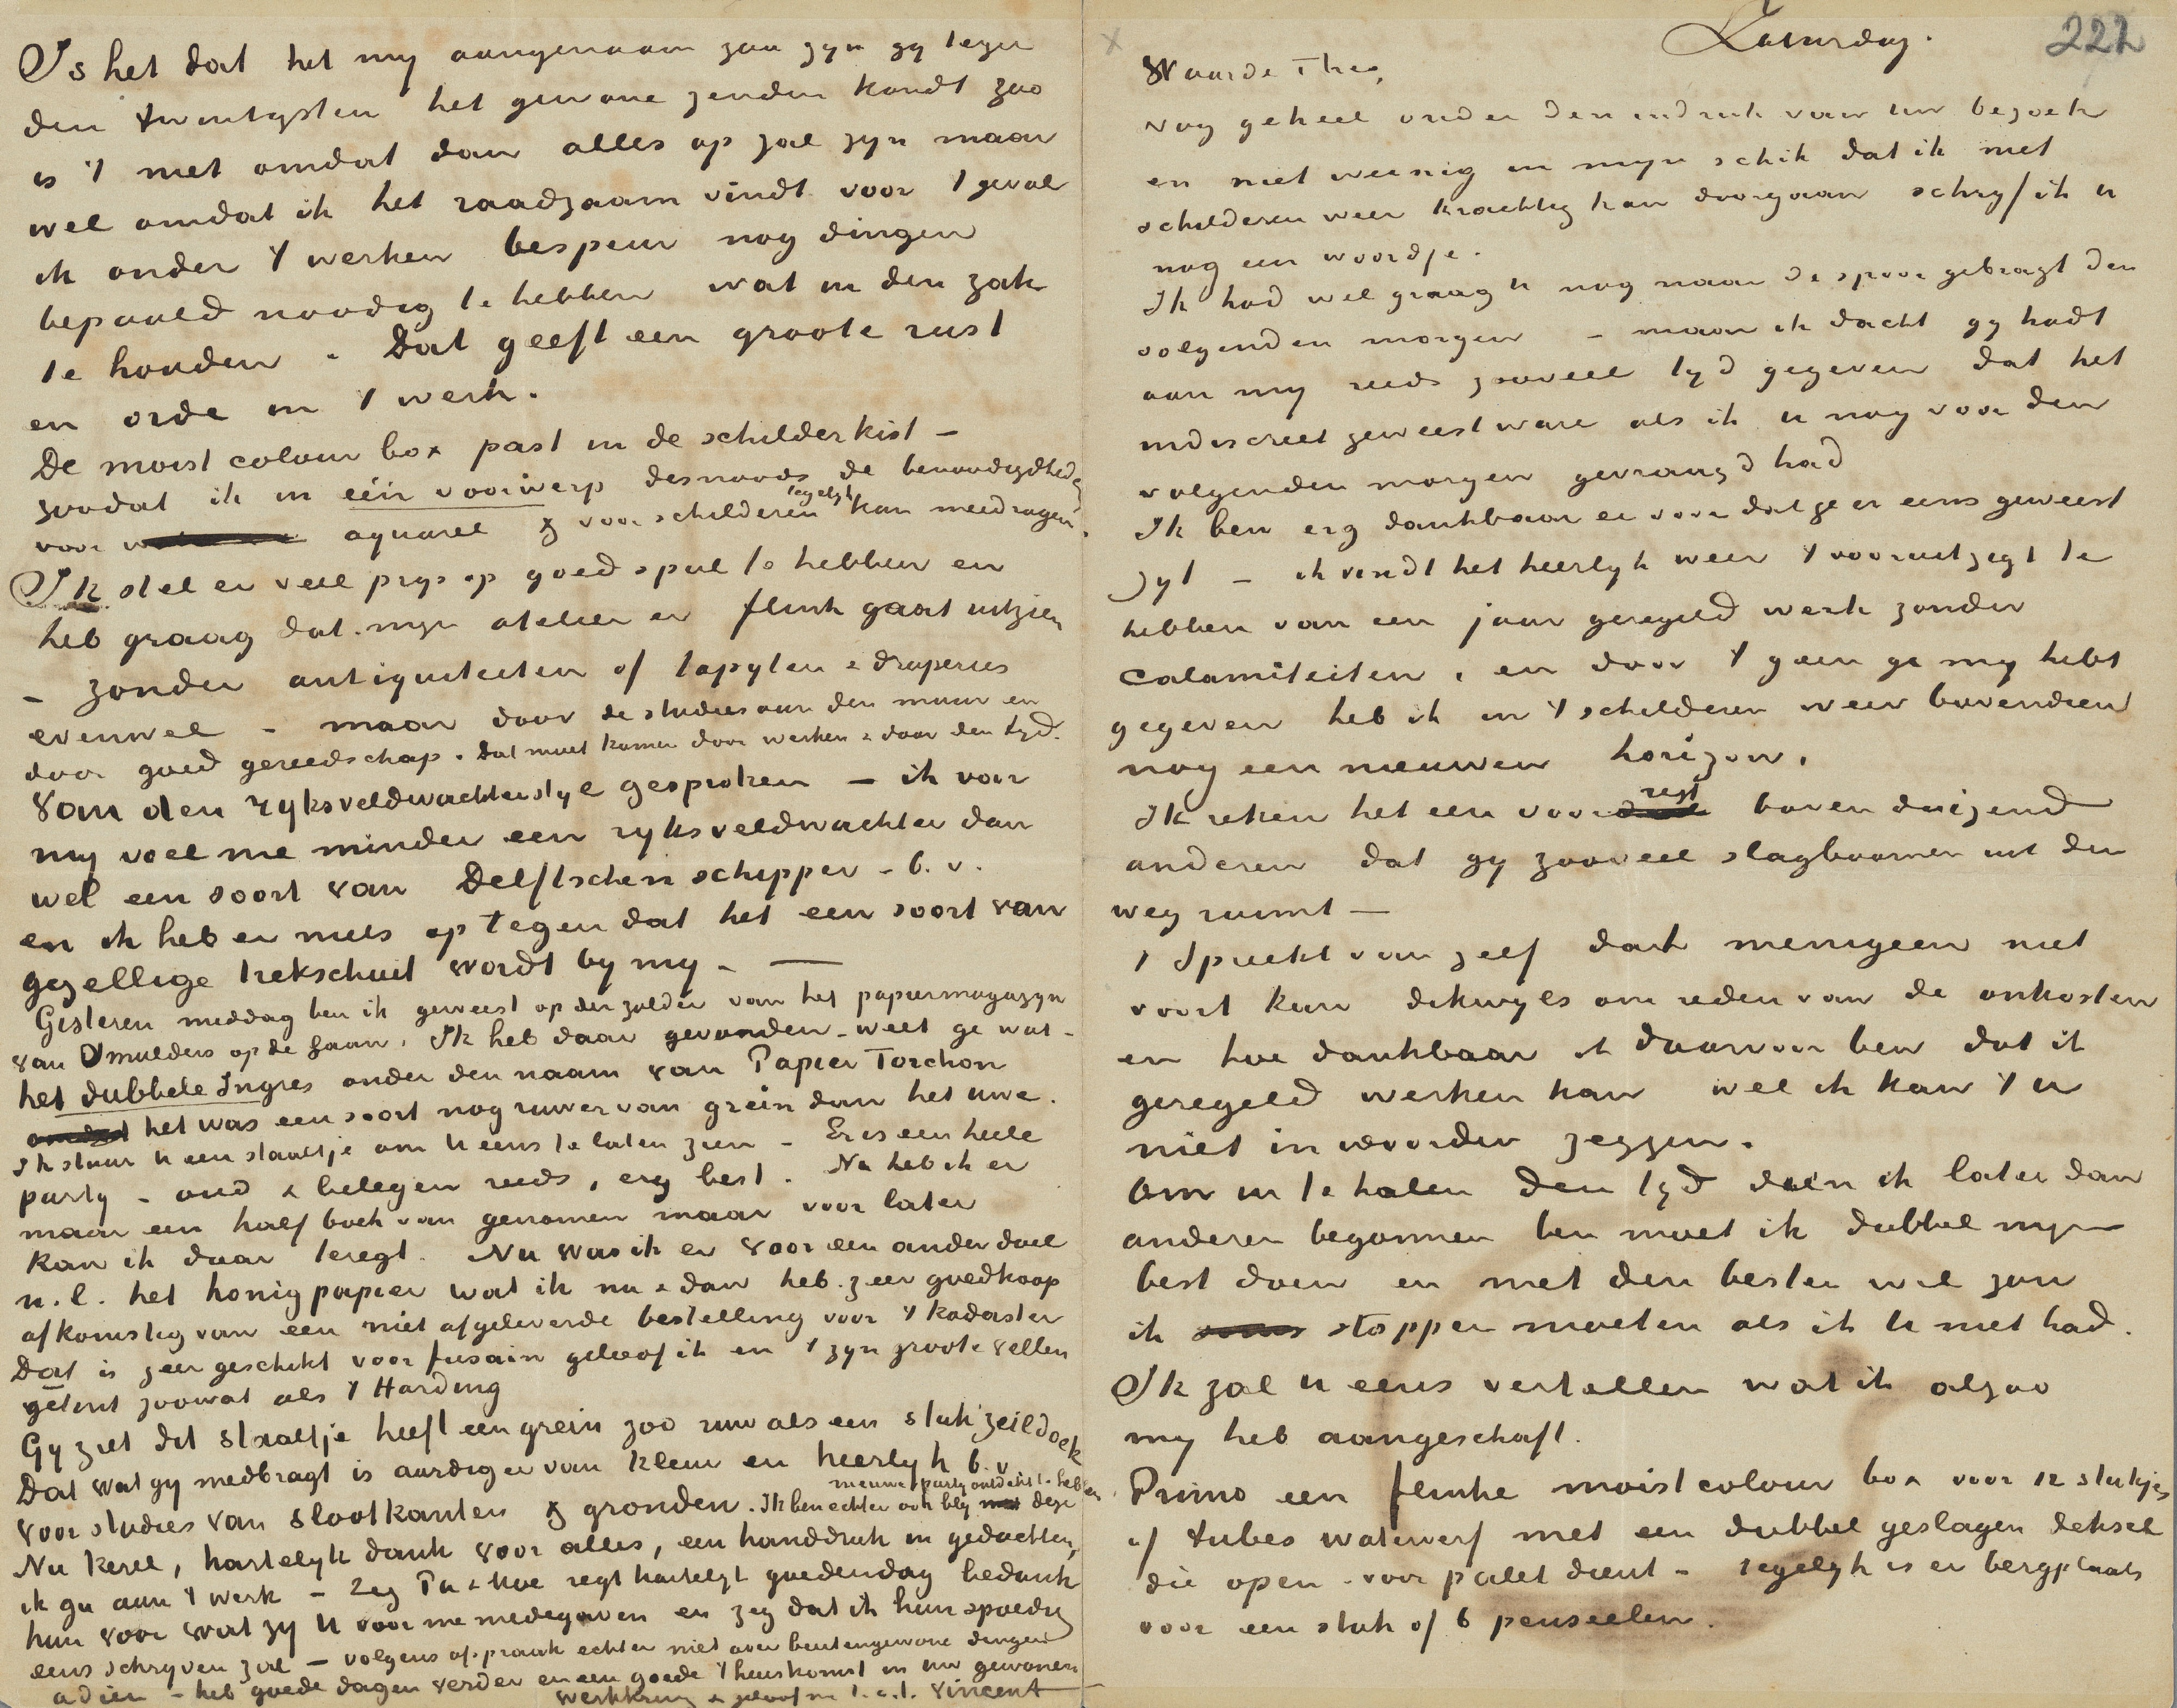 Is het dat het my aangenaam zou zyn gy tegen
den twintigsten het gewone zenden kondt zoo
is 't niet omdat dan alles op zal zyn maar
wel omdat ik het raadzaam vindt voor 't geval
ik onder 't werken bespeur nog dingen
bepaald noodig te hebben wat in den zak
te houden. Dat geeft een groote rust
en orde in 't werk.
De moist colour box past in de schilderkist –
zoodat ik in één voorwerp desnoods de benoodigdheden
voor aquarel & voor schilderen tegelyk kan meedragen.
Ik stel er veel prys op goed spul te hebben en
heb graag dat myn atelier er flink gaat uitzien
– zonder antiquiteiten of tapyten & draperies
evenwel – maar door de studies aan den muur en
door goed gereedschap. Dat moet komen door werken & door den tyd.
Van den ryksveldwachterstyl gesproken – ik voor
my voel me minder een ryksveldwachter dan
wel een soort van Delftschen schipper – b.v.
en ik heb er niets op tegen dat het een soort van
gezellige trekschuit wordt by my. –
Gisteren middag ben ik geweest op den zolder van het papiermagazyn
van Smulders op de Laan. Ik heb daar gevonden – weet ge wat –
het dubbele Ingres onder den naam van Papier Torchon
het was een soort nog ruwer van grein dan het uwe.
Ik stuur U een staaltje om U eens te laten zien – Er is een heele
party – oud & belegen reeds, erg best. Nu heb ik er
maar een half boek van genomen maar voor later
kan ik daar teregt. Nu was ik er voor een ander doel
n.l. het honigpapier wat ik nu & dan heb. zeer goedkoop
afkomstig van een niet afgeleverde bestelling voor 't kadaster
Dat is zeer geschikt voor fusain geloof ik en 't zyn groote vellen
getint zoowat als 't Harding
Gy ziet dit staaltje heeft een grein zoo ruw als een stuk zeildoek
Dat wat gy medbragt is aardiger van kleur en heerlyk b.v.
voor studies van slootkanten & gronden. Ik ben echter ook bly deze nieuwe party ontdekt te hebben.
Nu kerel, hartelyk dank voor alles, een handdruk in gedachten,
ik ga aan 't werk – Zeg Pa & Moe regt hartelyk goedendag bedank
hun voor wat zy U voor me medegaven en zeg dat ik hun spoedig
eens schryven zal – volgens afspraak echter niet over buitengewone dingen
adieu – heb goede dagen verder en een goede t'huiskomst in uw gewonen
werkkring & geloof me t.à.t. Vincent
Zaturdag. 222
Waarde Theo,
Nog geheel onder den indruk van uw bezoek
en niet weinig in myn schik dat ik met
schilderen weer krachtig kan doorgaan schryf ik U
nog een woordje.
Ik had wel graag U nog naar de spoor gebragt den
volgenden morgen – maar ik dacht gy hadt
aan my reeds zooveel tyd gegeven dat het
indiscreet geweest ware als ik U nog voor den
volgenden morgen gevraagd had
Ik ben erg dankbaar er voor dat ge er eens geweest
zyt – ik vindt het heerlyk weer 't vooruitzigt te
hebben van een jaar geregeld werk zonder
calamiteiten, en door 't geen ge my hebt
gegeven heb ik in 't schilderen weer bovendien
nog een nieuwen horizon.
Ik reken het een voorregt boven duizend
anderen dat gy zooveel slagboomen uit den
weg ruimt –
't Spreekt van zelf dat menigeen niet
voort kan dikwyls om reden van de onkosten
en hoe dankbaar ik daarvoor ben dat ik
geregeld werken kan wel ik kan 't U
niet in woorden zeggen.
Om in te halen den tyd dien ik later dan
anderen begonnen ben moet ik dubbel myn
best doen en met den besten wil zou
ik stoppen moeten als ik U niet had.
Ik zal U eens vertellen wat ik alzoo
my heb aangeschaft.
Primo een flinke moist colour box voor 12 stukjes
of tubes waterverf met een dubbel geslagen deksel
die open – voor palet dient – tegelyk is er bergplaats
voor een stuk of 6 penseelen.